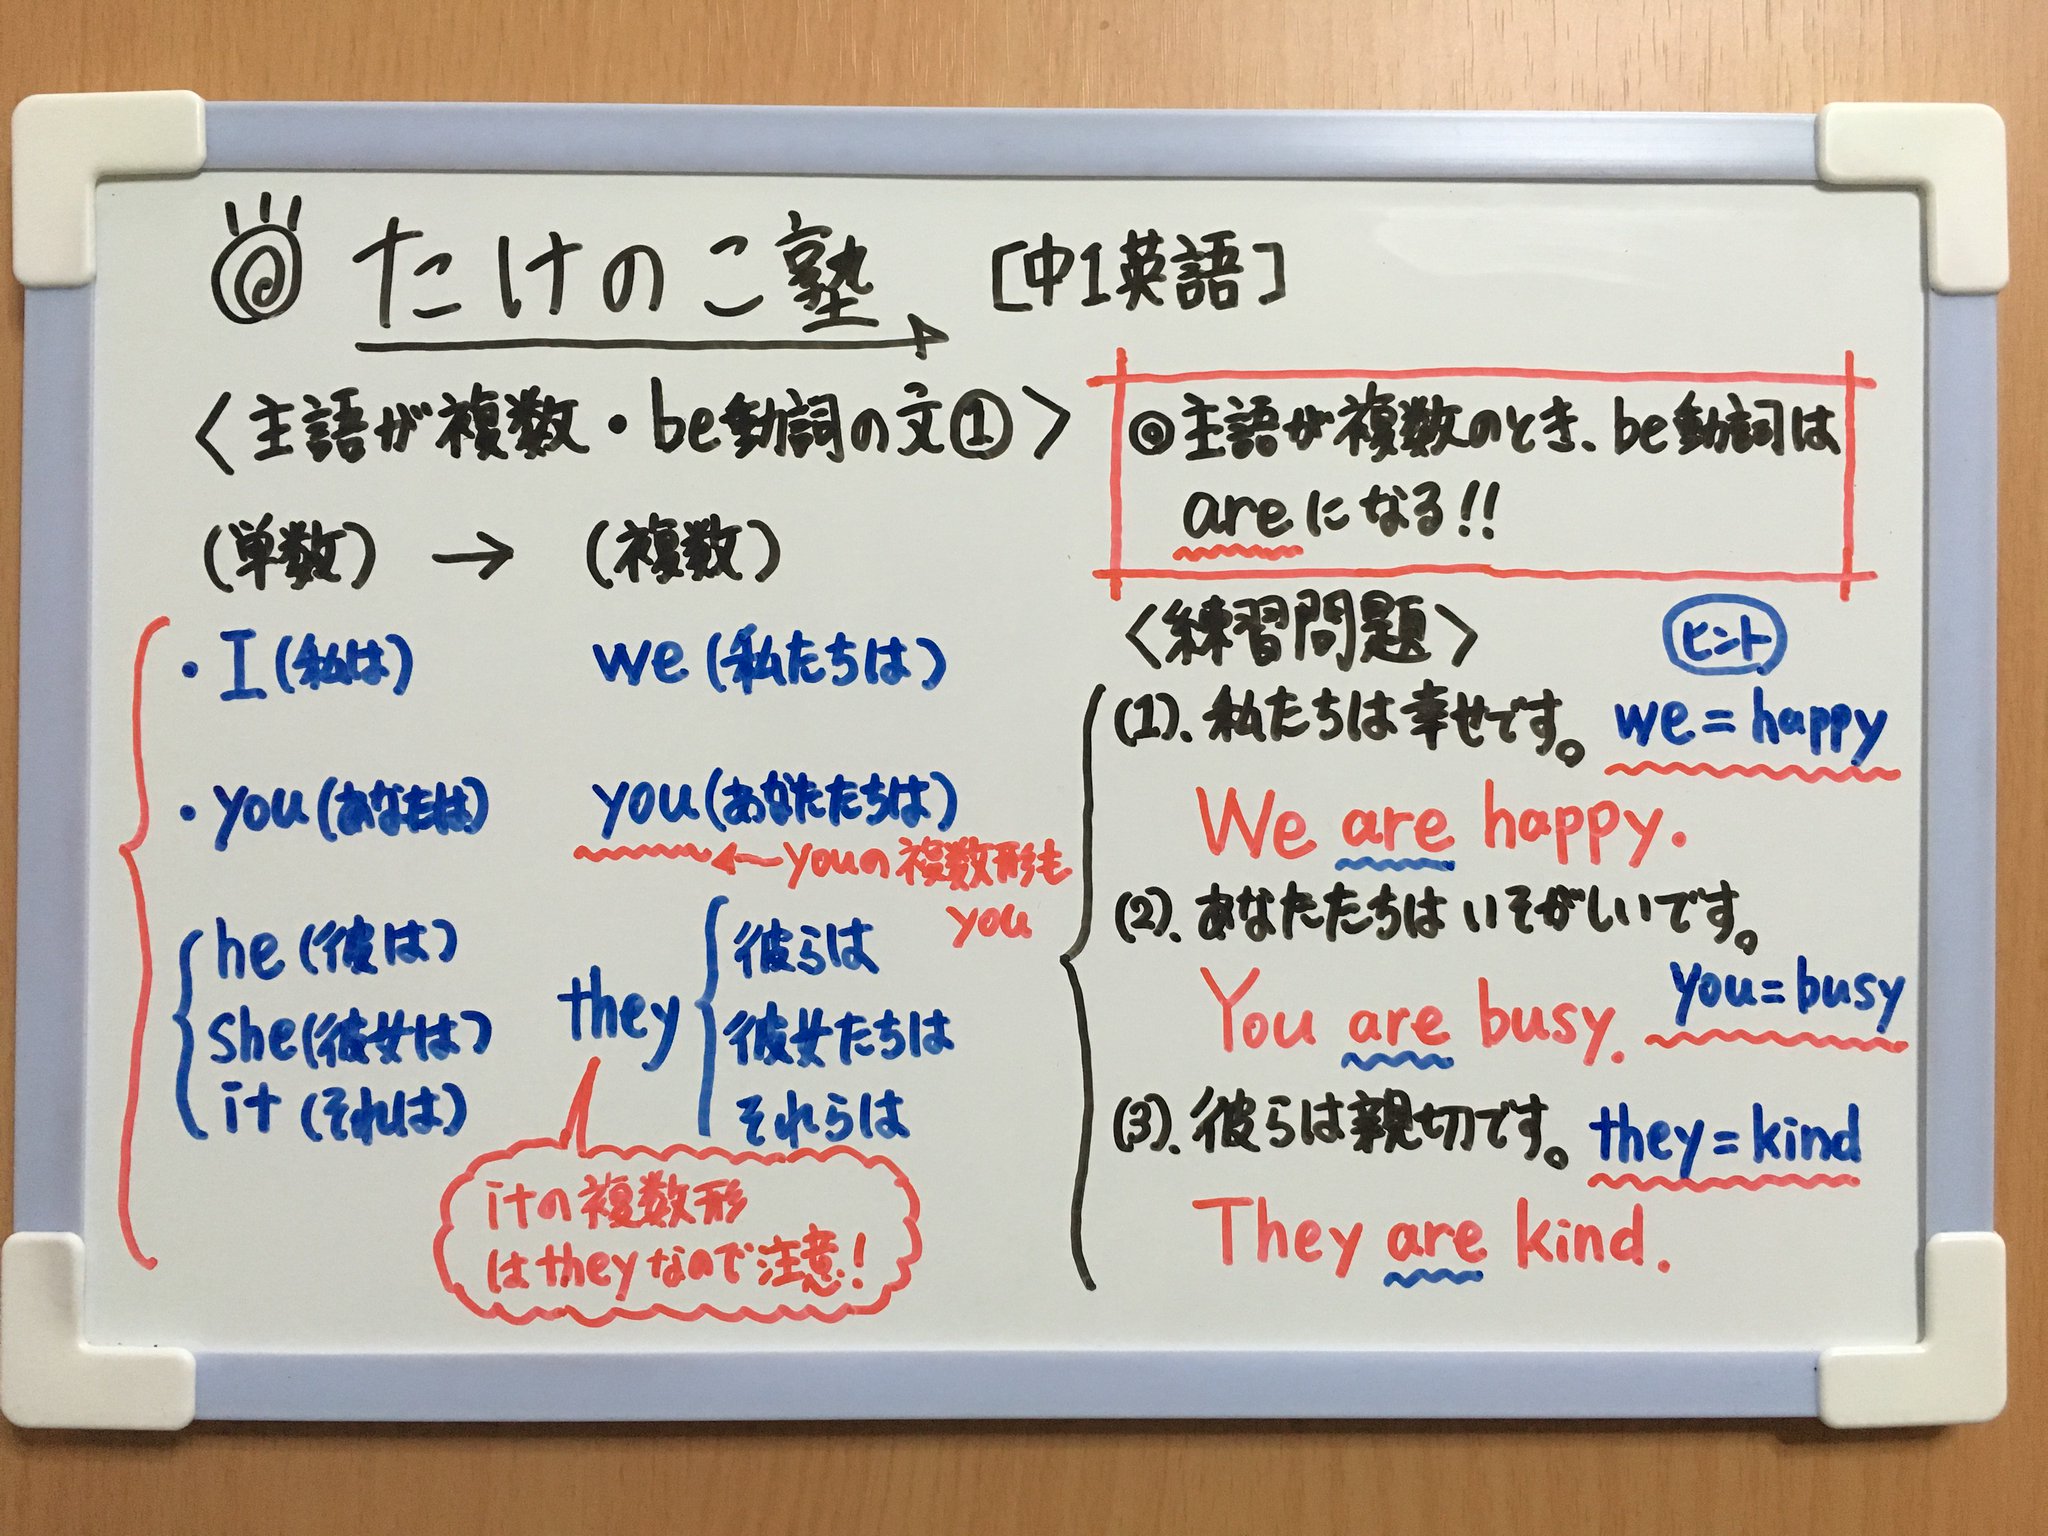 たけのこ塾 [中1英語]
〈主語が複数・be動詞の文①〉
(単数) → (複数)
・I(私は) we(私たちは)
・you(あなたは) you(あなたたちは)
←youの複数形も
you
he(彼は)
she(彼女は)
it(それは)
they
彼らは
彼女たちは
それらは
itの複数形
はtheyなので注意!
◎主語が複数のとき、be動詞は
areになる!!
〈練習問題〉 ヒント
(1). 私たちは幸せです。 we=happy
We are happy.
(2). あなたたちはいそがしいです。
you=busy
You are busy.
(3). 彼らは親切です。 they=kind
They are kind.